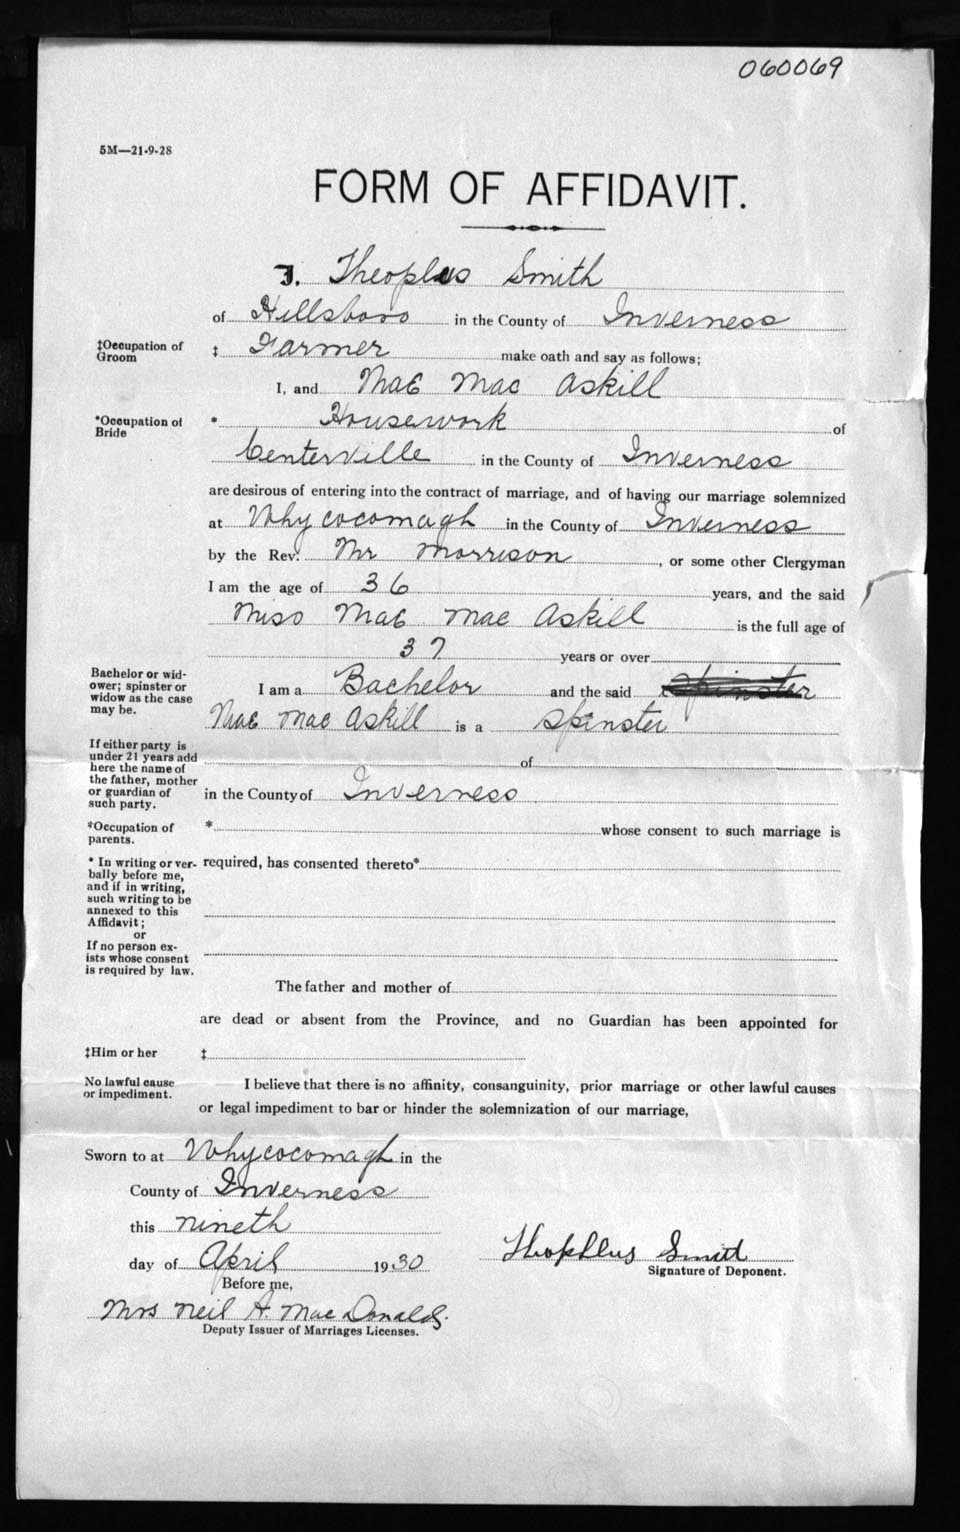 060069
5M—21-9-28
FORM OF AFFIDAVIT.
I, Theoplus Smith
of Hillsboro in the County of Inverness
‡Occupation of Groom ‡ Farmer make oath and say as follows;
I, and Mae Mac Askill
*Occupation of Bride * Housework of
Centerville in the County of Inverness
are desirous of entering into the contract of marriage, and of having our marriage solemnized
at Whycocomagh in the County of Inverness
by the Rev. Mr Morrison, or some other Clergyman
I am the age of 36 years, and the said
Miss Mae Mac Askill is the full age of
37 years or over
Bachelor or widower; spinster or widow as the case may be. I am a Bachelor and the said spinster
Mae Mac Askill is a Spinster
If either party is under 21 years add here the name of the father, mother or guardian of such party. of
in the County of Inverness
*Occupation of parents. * whose consent to such marriage is
* In writing or verbally before me, and if in writing, such writing to be annexed to this Affidavit; or If no person exists whose consent is required by law. required, has consented thereto*
The father and mother of
are dead or absent from the Province, and no Guardian has been appointed for
‡Him or her ‡
No lawful cause or impediment. I believe that there is no affinity, consanguinity, prior marriage or other lawful causes
or legal impediment to bar or hinder the solemnization of our marriage,
Sworn to at Whycocomagh in the
County of Inverness
this nineth
day of April 1930
Before me,
Theophlus Smith
Signature of Deponent.
Mrs Neil A. MacDonald
Deputy Issuer of Marriages Licenses.